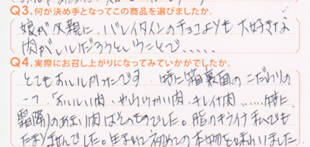 Q3.何が決め手となってこの商品を選びましたか。
娘が父親に、バレイタインのチョコよりも大好きな
肉がいいだろうということで‥‥。
Q4.実際にお召し上がりになってみていかがでしたか。
とてもおいしかったです 特に箱裏面のこだわりの
一つ おいしい肉、やわらかい肉、キレイな肉‥‥特に
霜降りのあまい肉はそのものでした。脂のキライな私でも
たまりませんでした。生まれて初めての本物を味わいました